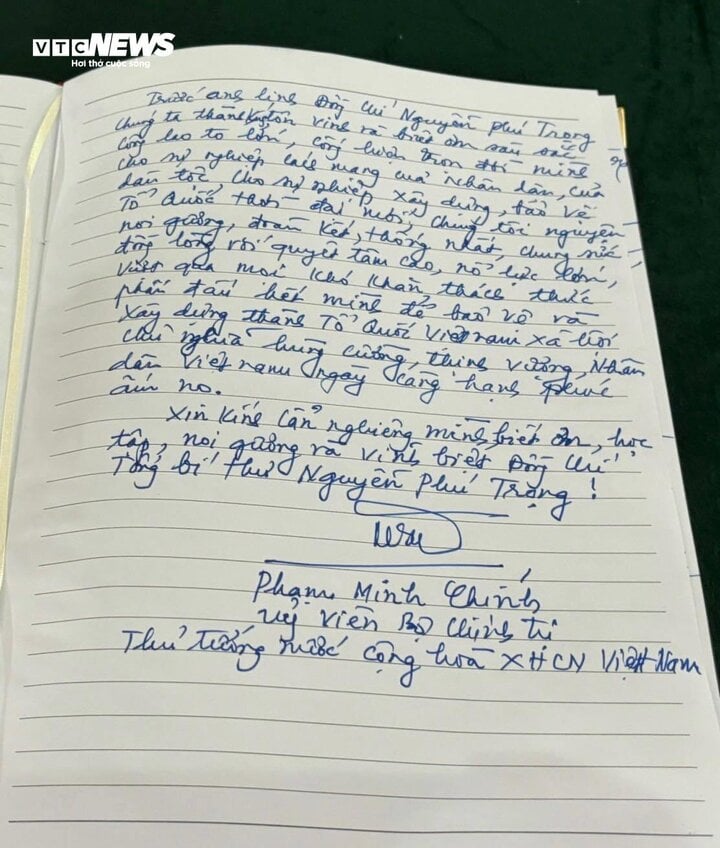 VTC NEWS
Hơi thở cuộc sống
Trước anh linh Đồng chí Nguyễn Phú Trọng
Chúng ta thành kính tôn vinh và biết ơn sâu sắc
công lao to lớn, cống hiến trọn đời mình
cho sự nghiệp cách mạng của Nhân dân, của
dân tộc cho sự nghiệp xây dựng, bảo vệ
Tổ Quốc thời đại mới, chúng tôi nguyện
noi gương, đoàn kết, thống nhất, chung sức,
đồng lòng với quyết tâm cao, nỗ lực lớn,
vượt qua mọi khó khăn thách thức
phấn đấu hết mình để bảo vệ và
xây dựng thành Tổ Quốc Việt nam xã hội
chủ nghĩa hùng cường, thịnh vượng, Nhân
dân Việt nam ngày càng hạnh phúc
ấm no.
Xin kính cẩn nghiêng mình biết ơn, học
tập, noi gương và vĩnh biệt Đồng chí
Tổng bí thư Nguyễn Phú Trọng!
Phạm Minh Chính
Uỷ viên Bộ Chính trị
Thủ tướng nước Cộng hoà XHCN Việt Nam